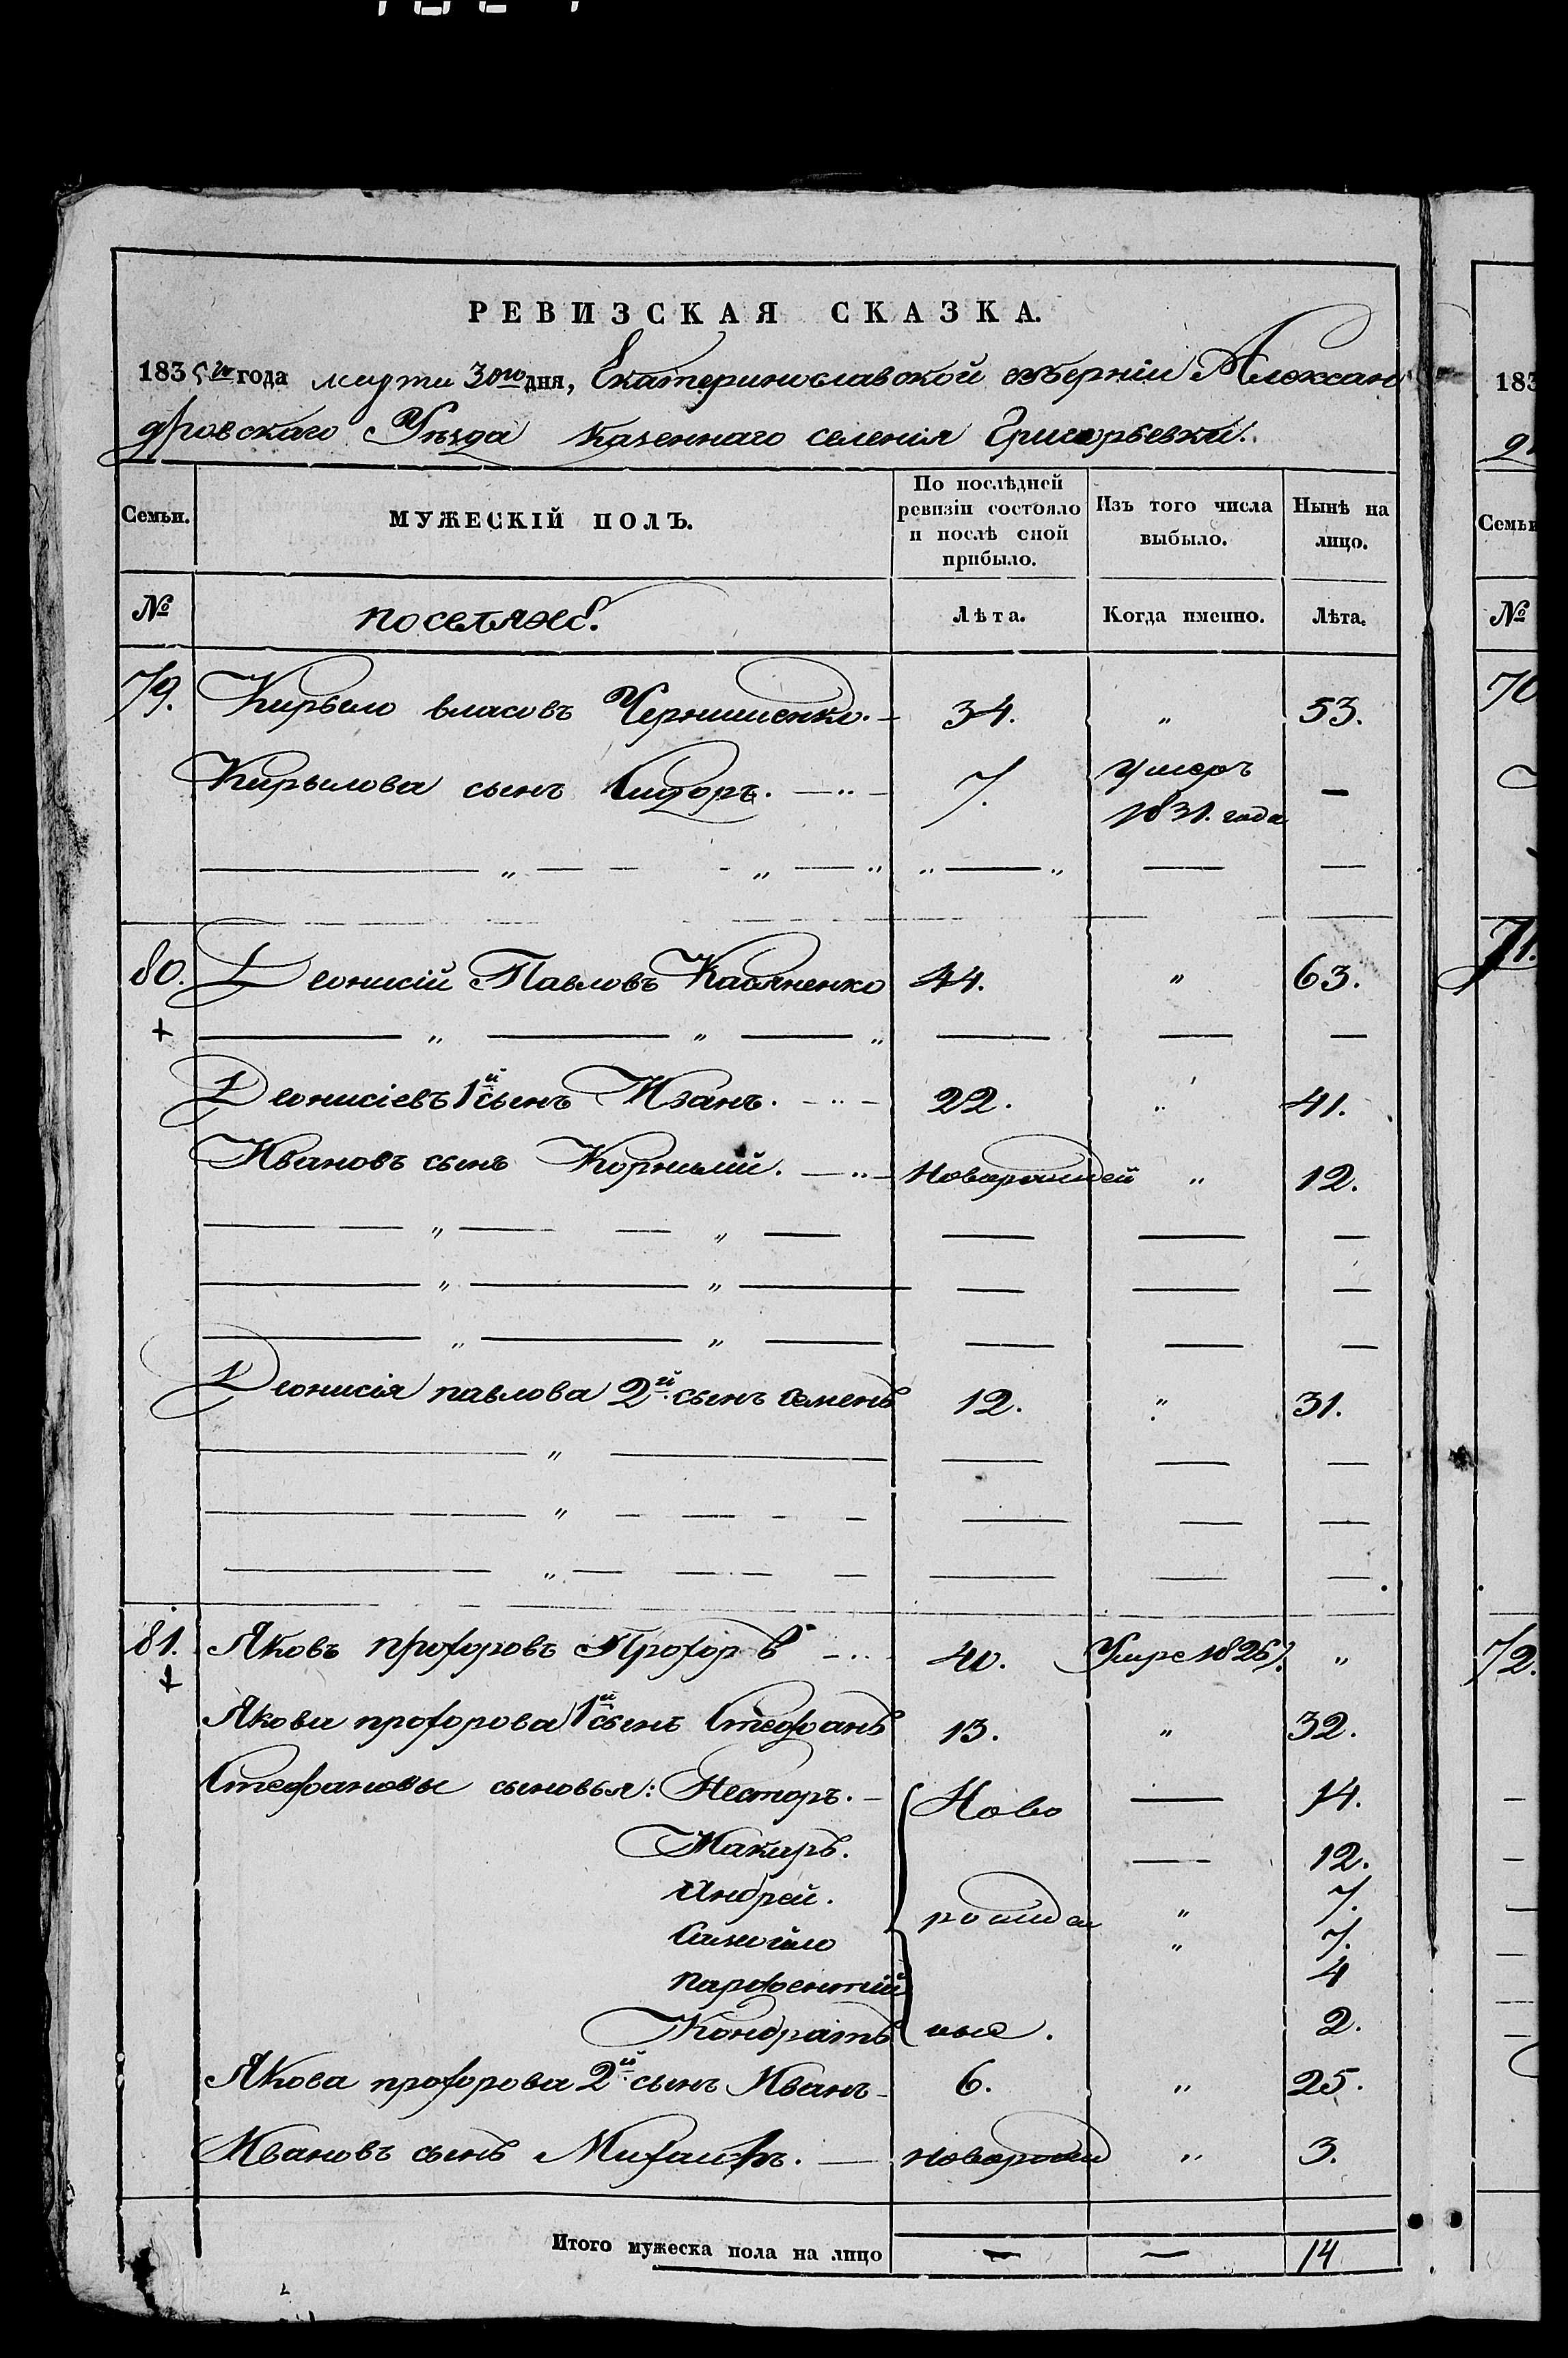 РЕВИЗСКАЯ СКАЗКА.
1835го года марта 30го дня, Екатеринославской губерніи Алексан
дровскаго Уѣзда казеннаго селенія Григорьевки.
Семьи. МУЖЕСКІЙ ПОЛЪ. По послѣдней ревизіи состояло и послѣ оной прибыло. Изъ того числа выбыло. Нынѣ на лицо.
№ поселянъ. Лѣта. Когда именно. Лѣта.
79. Кирыло власовъ Чернишенко. 34. „ 53.
Кирылова сынъ Сидоръ. 7. умеръ 1831. года —
80. Деонисій Павловъ Касяненко 44. „ 63.
Деонисіевъ 1й сынъ Иванъ. 22. „ 41.
Ивановъ сынъ Корнилій. новорожденй „ 12.
Деонисія павлова 2й сынъ семенъ 12. „ 31.
81. Яковъ прохоровъ Прохоръ 40. Умре 1826 г. „
Якова прохорова 1й сынъ Стефанъ 13. „ 32.
Стефановы сыновья: Несторъ. Ново — 14.
Макаръ. — 12.
Андрей. рожден „ 7.
Самойло „ 7.
Парфентій 4
Кондратъ ные. 2.
Якова прохорова 2й сынъ Иванъ 6. „ 25.
Ивановъ сынъ Михаилъ. новорожд „ 3.
Итого мужеска пола на лицо — — 14
183
Семьи
№
70
71.
72.